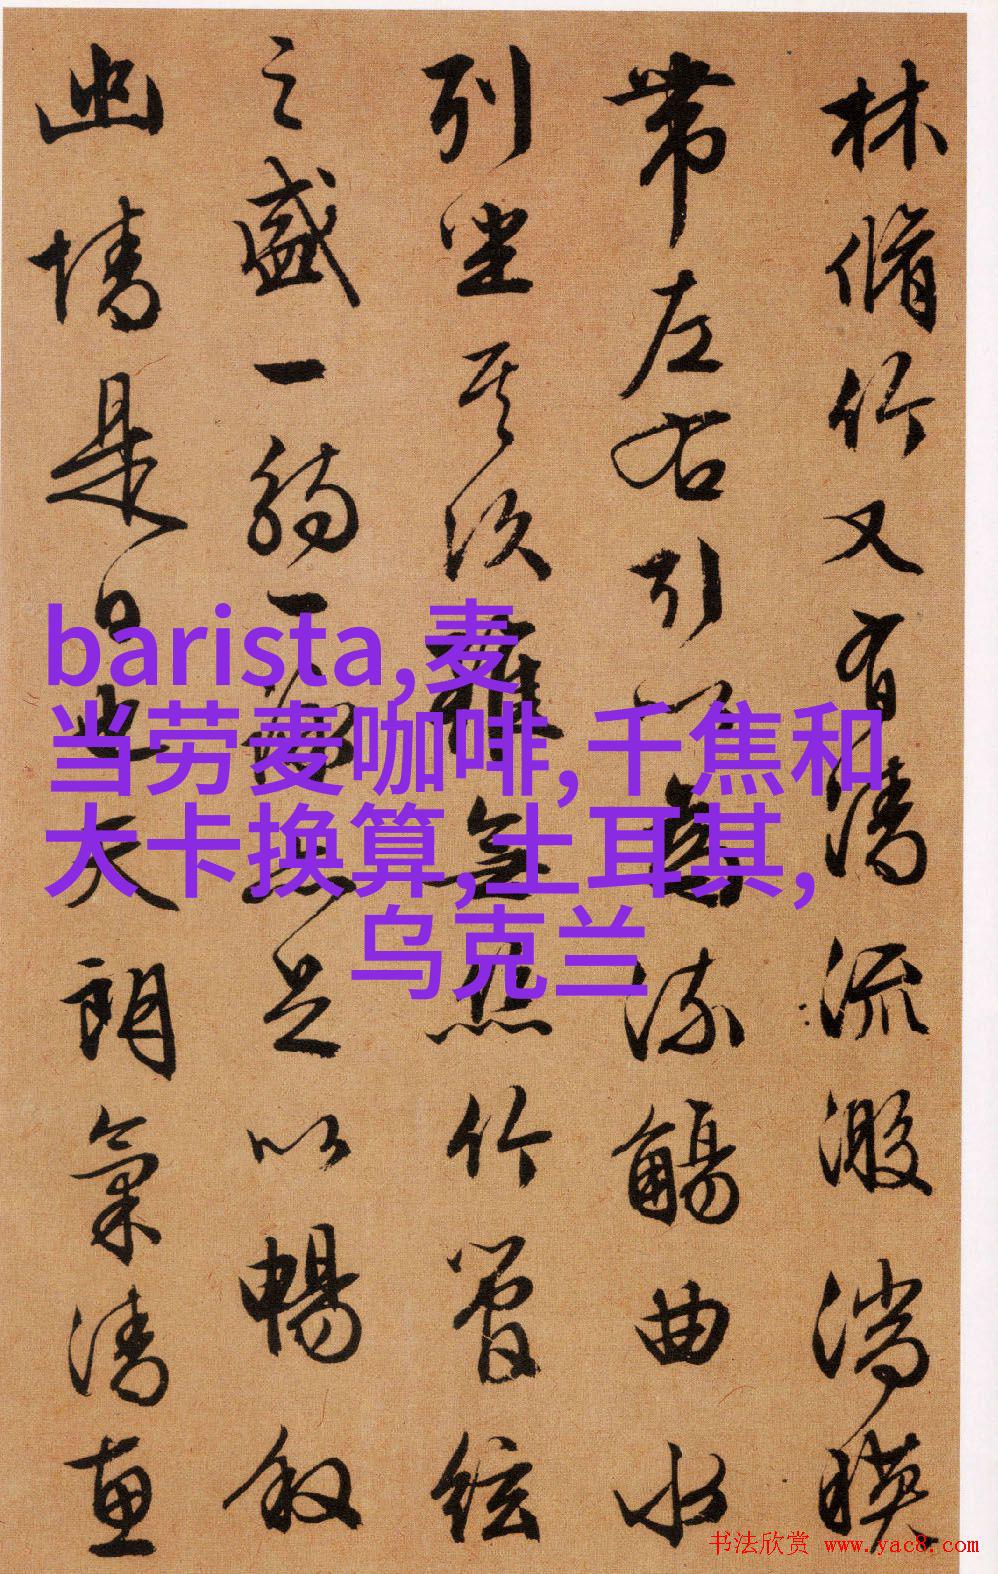 林脩竹又有清流激湍暎
帶左右引以為流觴曲水
列坐其次雖無絲竹管絃
之盛一觴一詠亦足以暢敘
幽情是日也天朗氣清惠
barista,麦
当劳麦咖啡,千焦和
大卡换算,土耳其,
乌克兰
书法欣赏 www.yac8.com